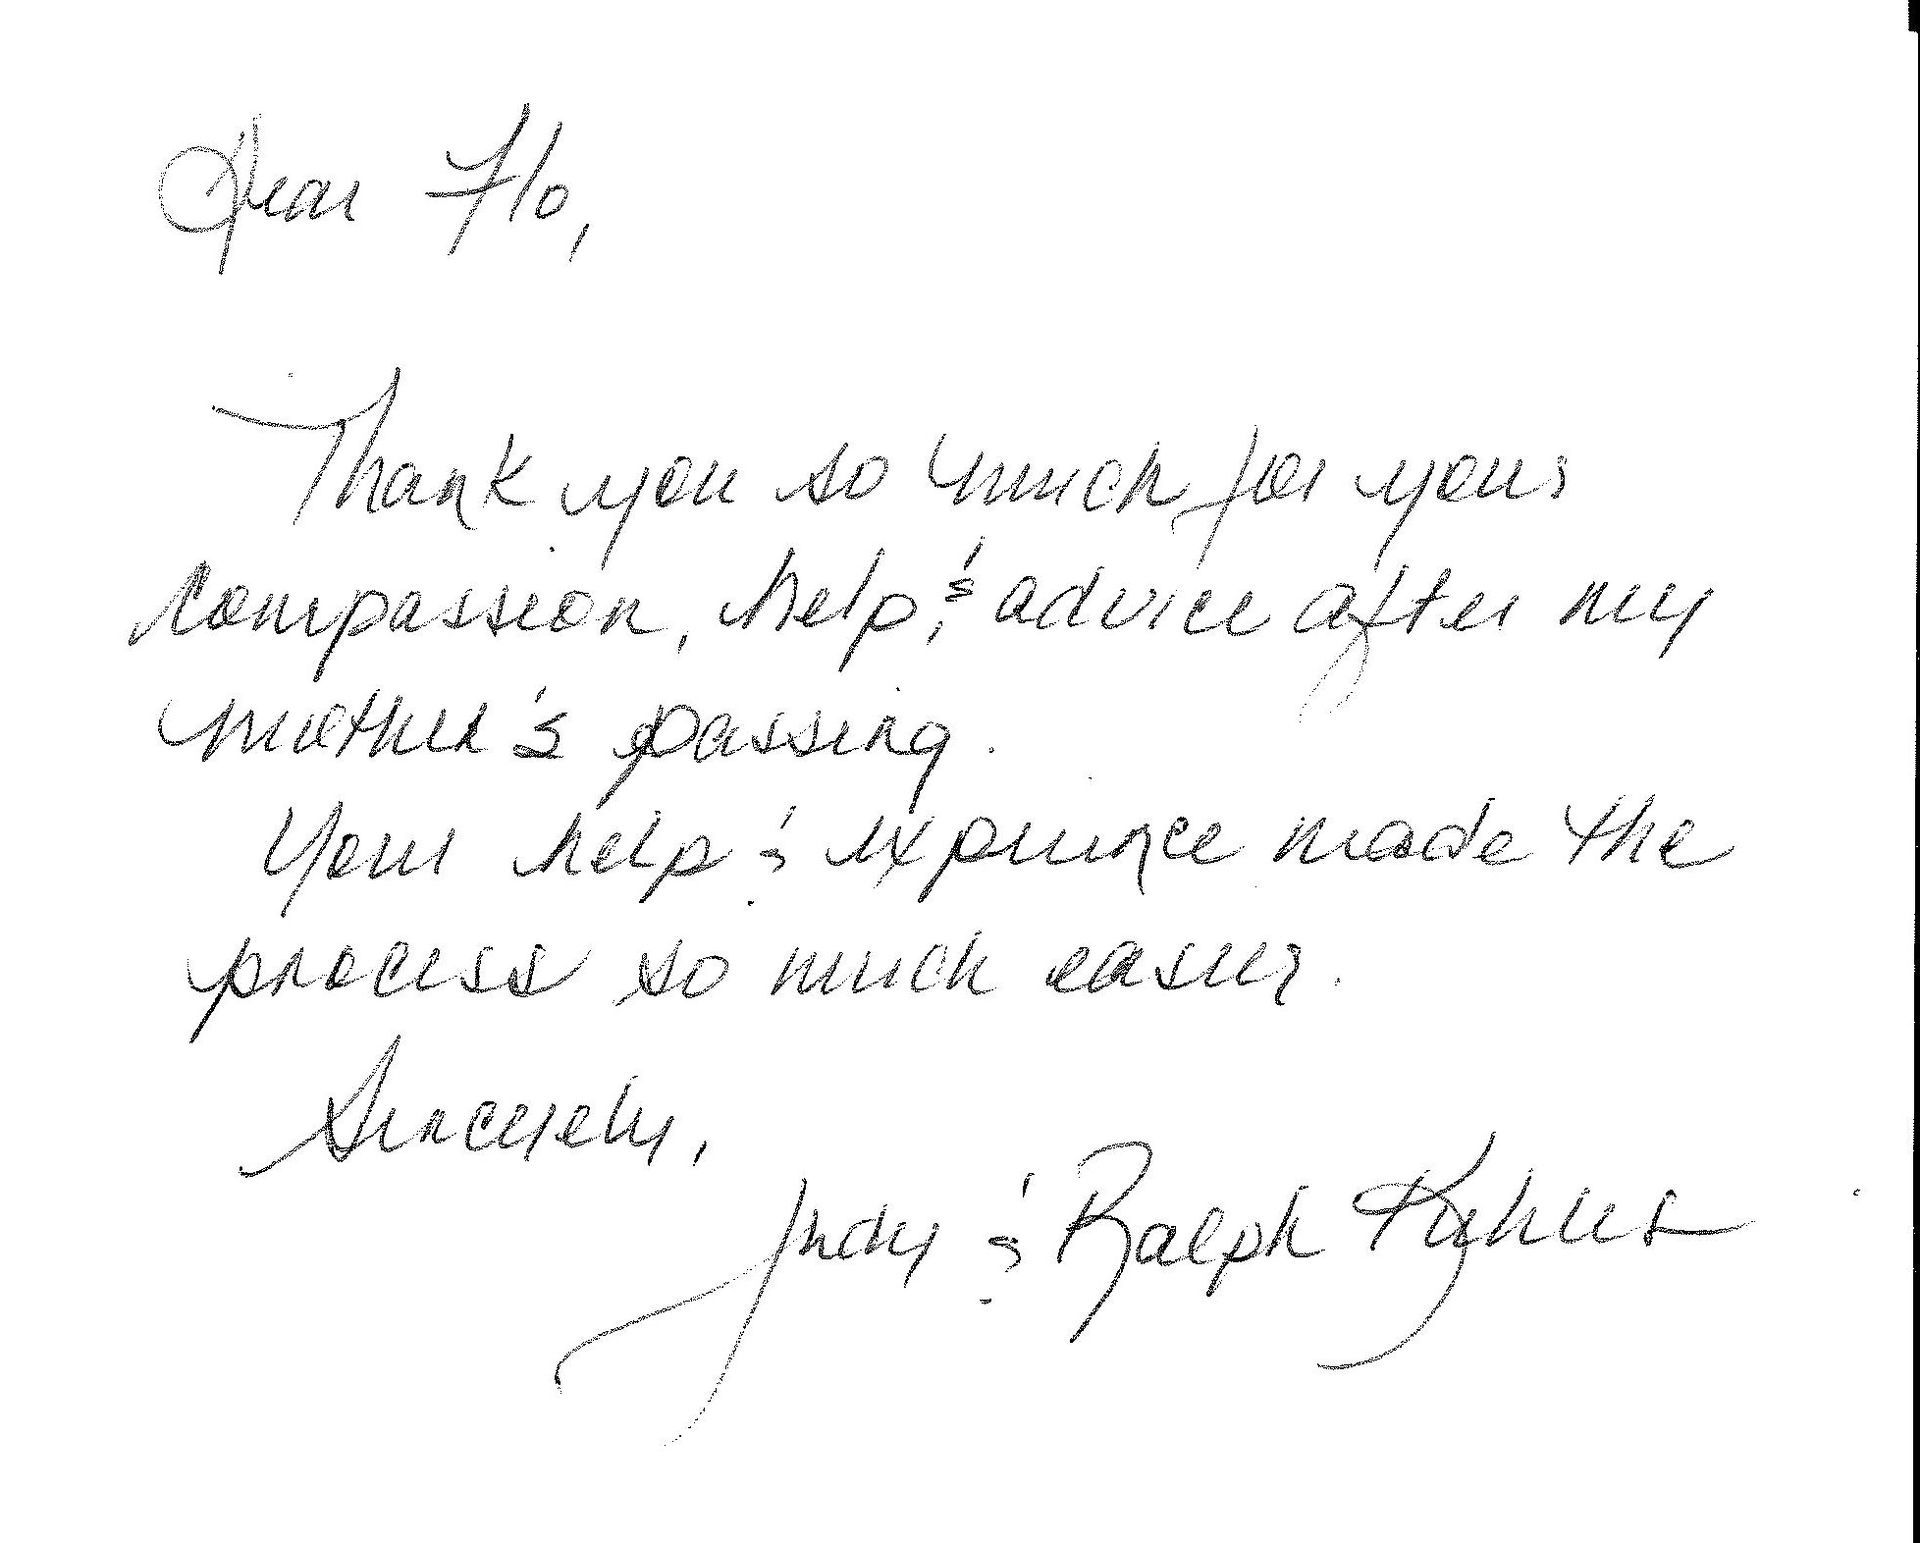 Dear Flo,
Thank you so much for your
compassion, help, & advice after my
mother's passing.
Your help & experience made the
process so much easier.
Sincerely,
Judy & Ralph